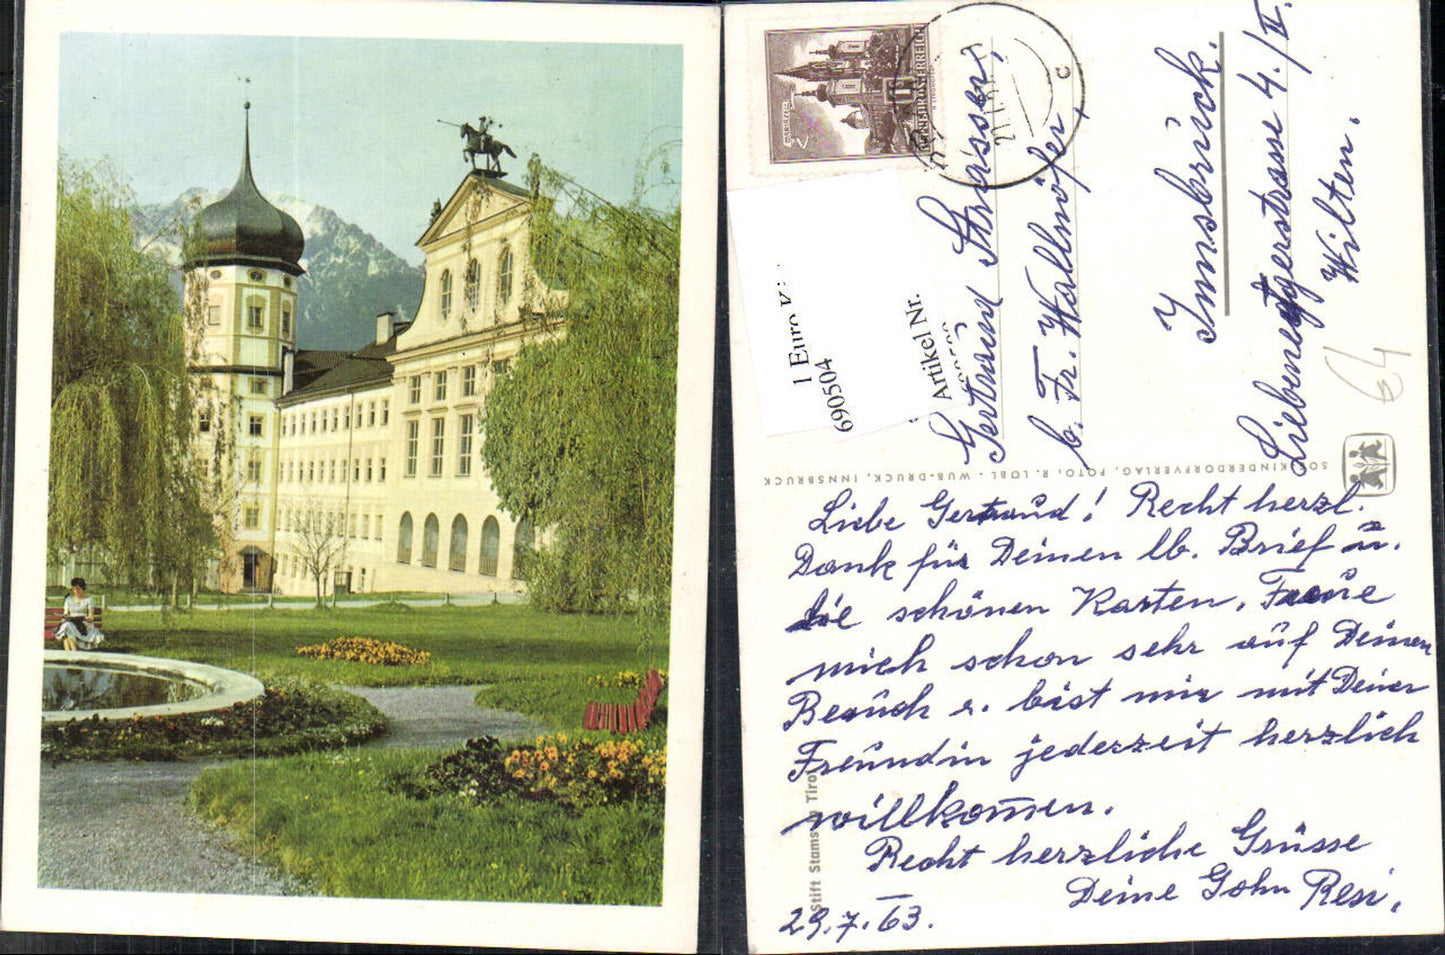 MARIAZELL
REPUBLIK ÖSTERREICH
C
1 Euro
690504
Artikel Nr.
Gertraud Strasser,
b. Fr. Wallnöfer,
Innsbruck.
Liebeneggerstrasse 4./II.
Wilten.
64
SOS-KINDERDORFVERLAG. FOTO: R. LÖBL - WUB-DRUCK, INNSBRUCK
Liebe Gertraud! Recht herzl.
Dank für Deinen lb. Brief u.
die schönen Karten. Freue
mich schon sehr auf Deinen
Besuch u. bist mir mit Deiner
Freundin jederzeit herzlich
willkom̅en.
Recht herzliche Grüsse
Deine Resi.
29.7.63.
Stift Stams in Tirol